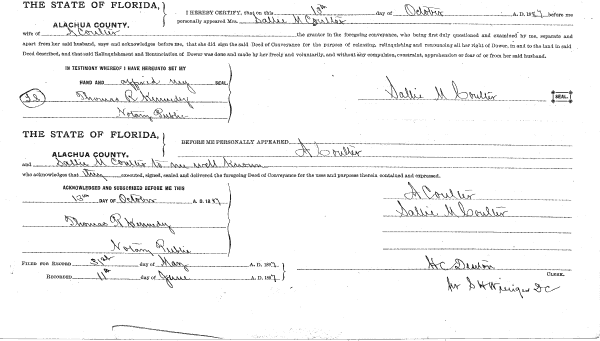 THE STATE OF FLORIDA,
ALACHUA COUNTY.
I HEREBY CERTIFY, that on this 13th day of October A. D. 1887 before me
personally appeared Mrs. Sallie M Coulter
wife of A Coulter the grantor in the foregoing conveyance, who being first duly questioned and examined by me, separate and
apart from her said husband, says and acknowledges before me, that she did sign the said Deed of Conveyance for the purpose of releasing, relinquishing and renouncing all her right of Dower, in and to the land in said
Deed described, and that said Relinquishment and Renunciation of Dower was done and made by her freely and voluntarily, and without any compulsion, constraint, apprehension or fear of or from her said husband.
IN TESTIMONY WHEREOF I HAVE HEREUNTO SET MY
HAND AND affixed my SEAL.
Thomas P. Kennedy
Notary Public
Sallie M Coulter
SEAL.
THE STATE OF FLORIDA,
ALACHUA COUNTY.
BEFORE ME PERSONALLY APPEARED A Coulter
and Sallie M Coulter to me well known
who acknowledges that they executed, signed, sealed and delivered the foregoing Deed of Conveyance for the uses and purposes therein contained and expressed.
ACKNOWLEDGED AND SUBSCRIBED BEFORE ME THIS
13th DAY OF October A. D. 1887
Thomas P. Kennedy
Notary Public
A Coulter
Sallie M Coulter
FILED FOR RECORD 31st day of May A. D. 188
RECORDED 11th day of June A. D. 188
H C Denton
CLERK.
D C